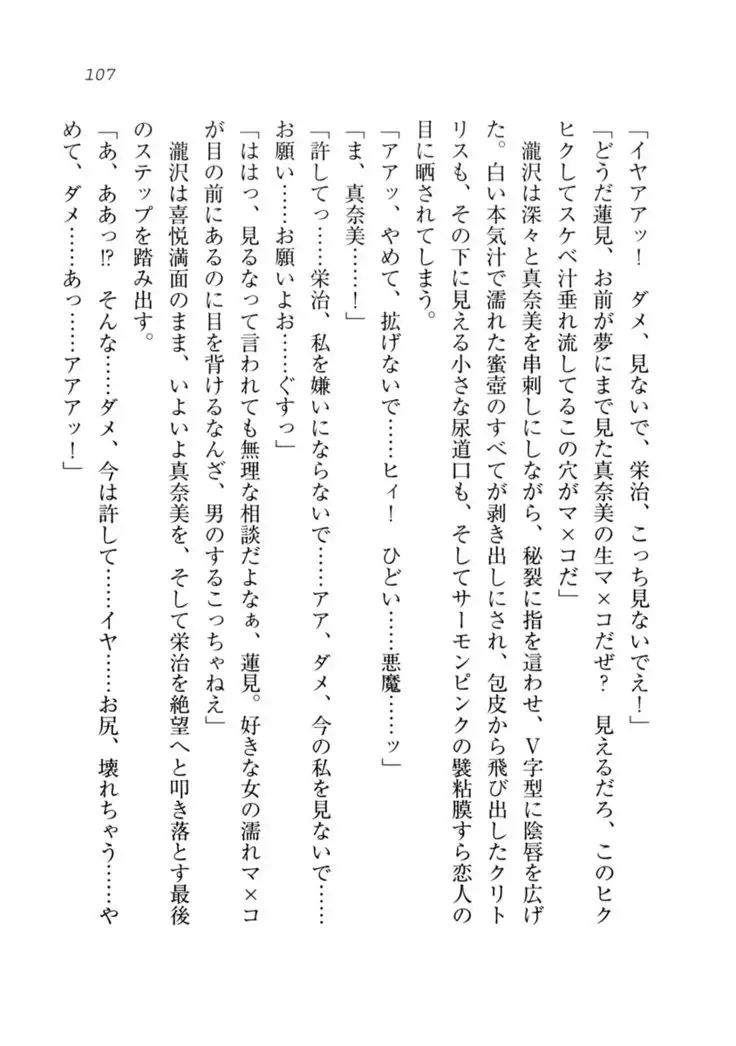 107
「イヤアアッ!　ダメ、見ないで、栄治、こっち見ないでえ!」
「どうだ蓮見、お前が夢にまで見た真奈美の生マ×コだぜ?　見えるだろ、このヒク
ヒクしてスケベ汁垂れ流してるこの穴がマ×コだ」
　瀧沢は深々と真奈美を串刺しにしながら、秘裂に指を這わせ、V字型に陰唇を広げ
た。白い本気汁で濡れた蜜壺のすべてが剥き出しにされ、包皮から飛び出したクリト
リスも、その下に見える小さな尿道口も、そしてサーモンピンクの襞粘膜すら恋人の
目に晒されてしまう。
「アアッ、やめて、拡げないで……ヒィ!　ひどい……悪魔……ッ」
「ま、真奈美……!」
「許してっ……栄治、私を嫌いにならないで……アア、ダメ、今の私を見ないで……
お願い……お願いよお……ぐすっ」
「ははっ、見るなって言われても無理な相談だよなぁ、蓮見。好きな女の濡れマ×コ
が目の前にあるのに目を背けるなんざ、男のするこっちゃねえ」
　瀧沢は喜悦満面のまま、いよいよ真奈美を、そして栄治を絶望へと叩き落とす最後
のステップを踏み出す。
「あ、ああっ⁉　そんな……ダメ、今は許して……イヤ……お尻、壊れちゃう……や
めて、ダメ……あっ……アアアッ!」